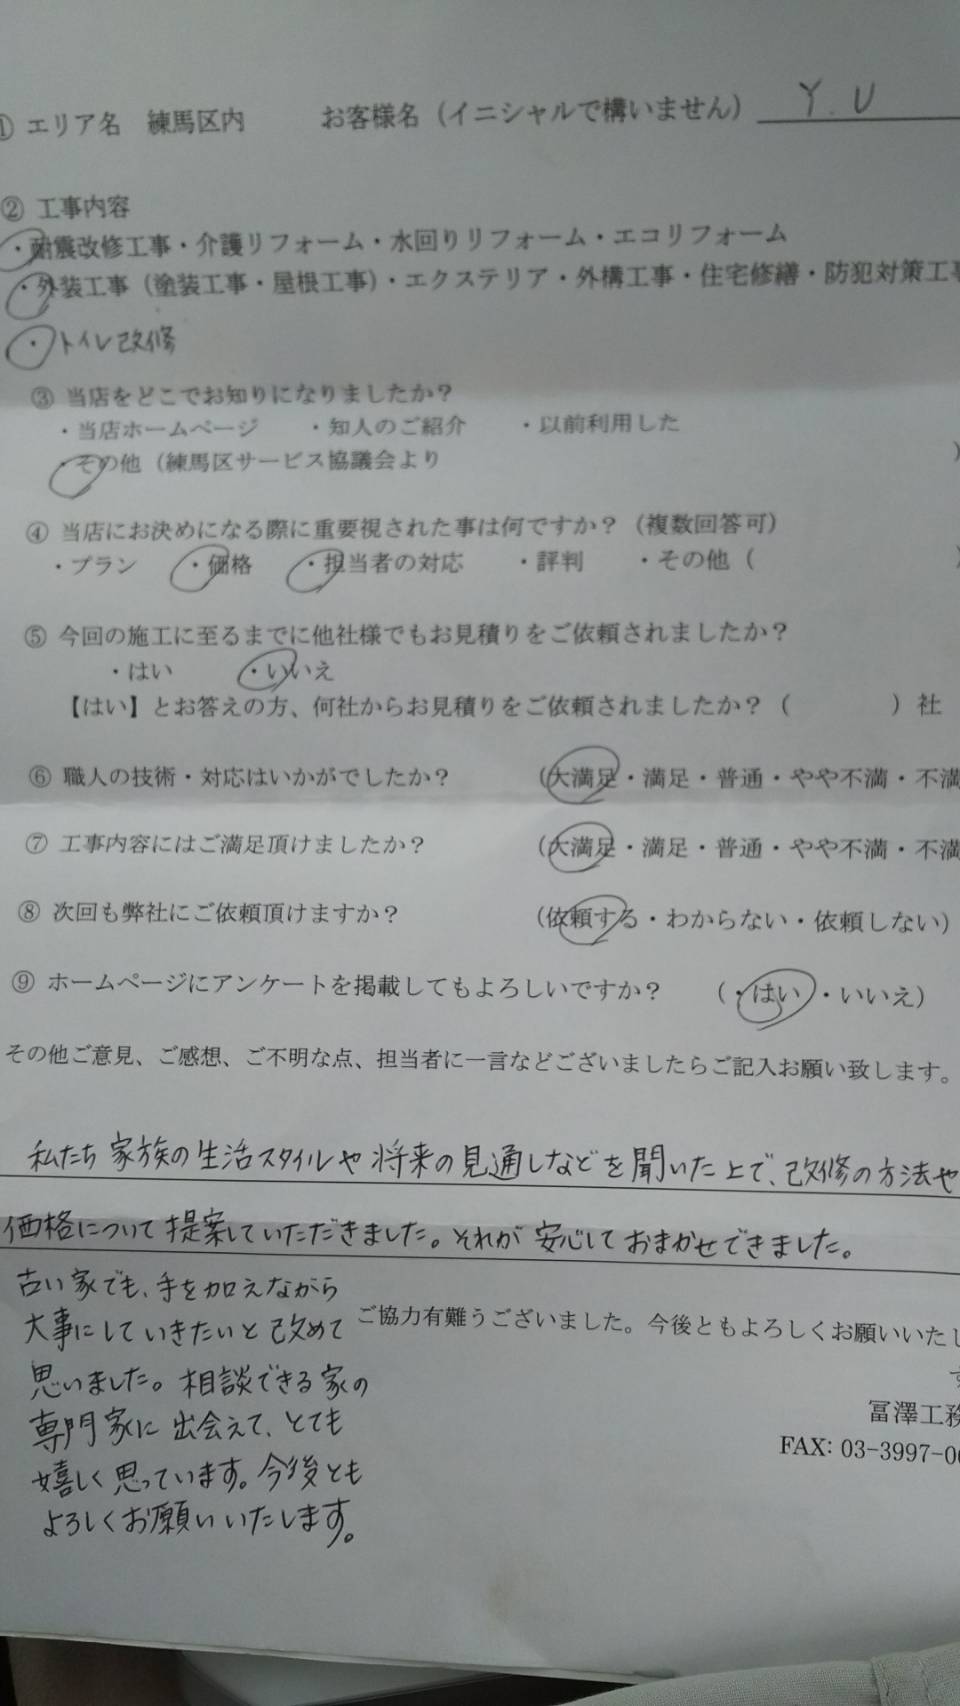 ① エリア名 練馬区内 お客様名（イニシャルで構いません） Y.U
② 工事内容
・耐震改修工事・介護リフォーム・水回りリフォーム・エコリフォーム
・外装工事（塗装工事・屋根工事）・エクステリア・外構工事・住宅修繕・防犯対策工事
・トイレ改修
③ 当店をどこでお知りになりましたか？
・当店ホームページ ・知人のご紹介 ・以前利用した
・その他（練馬区サービス協議会より ）
④ 当店にお決めになる際に重要視された事は何ですか？（複数回答可）
・プラン ・価格 ・担当者の対応 ・評判 ・その他（ ）
⑤ 今回の施工に至るまでに他社様でもお見積りをご依頼されましたか？
・はい ・いいえ
【はい】とお答えの方、何社からお見積りをご依頼されましたか？（ ）社
⑥ 職人の技術・対応はいかがでしたか？ （大満足・満足・普通・やや不満・不満
⑦ 工事内容にはご満足頂けましたか？ （大満足・満足・普通・やや不満・不満
⑧ 次回も弊社にご依頼頂けますか？ （依頼する・わからない・依頼しない）
⑨ ホームページにアンケートを掲載してもよろしいですか？ （・はい・いいえ）
その他ご意見、ご感想、ご不明な点、担当者に一言などございましたらご記入お願い致します。
私たち家族の生活スタイルや将来の見通しなどを聞いた上で、改修の方法や
価格について提案していただきました。それが安心しておまかせできました。
古い家でも、手を加えながら
大事にしていきたいと改めて
思いました。相談できる家の
専門家に出会えて、とても
嬉しく思っています。今後とも
よろしくお願いいたします。
ご協力有難うございました。今後ともよろしくお願いいたし
す
冨澤工務
FAX: 03-3997-0